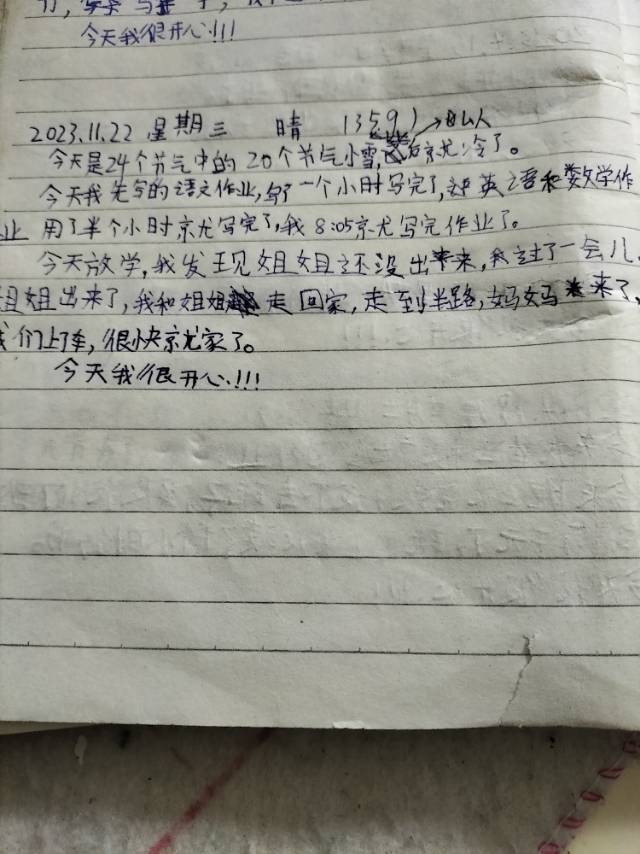 今天我很开心!!!
2023.11.22 星期三 晴 (359)
今天是24个节气中的20个节气小雪, 后就冷了。
今天我先写的语文作业,写了一个小时写完了,英语和数学作
业 用了半个小时就写完了,我8:05就写完作业了。
今天放学,我发现姐姐还没出来,过了一会儿
姐姐出来了,我和姐姐走回家,走到半路,妈妈来了,
我们上了车,很快就家了。
今天我很开心!!!